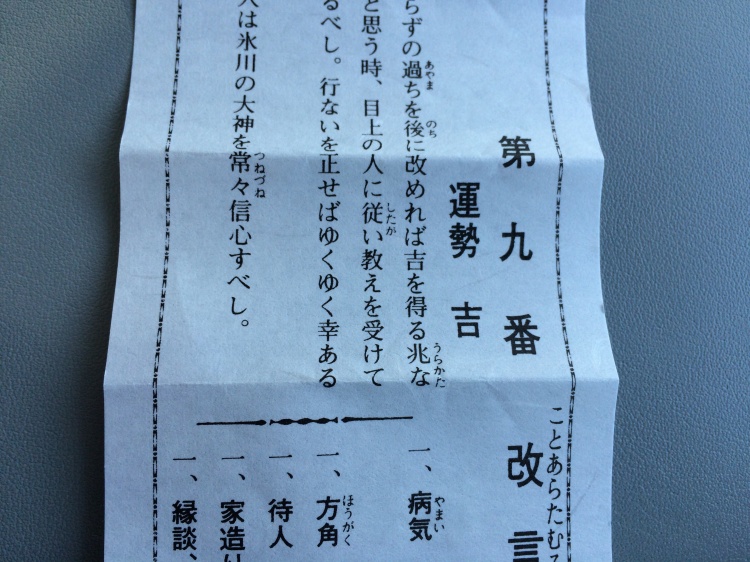 第九番
運勢 吉
らずの過ちを後に改めれば吉を得る兆な
あやま のち うらかた
と思う時、目上の人に従い教えを受けて
したが
るべし。行ないを正せばゆくゆく幸ある
人は氷川の大神を常々信心すべし。
つねづね
ことあらたむ
改言
一、病気
やまい
一、方角
ほうがく
一、待人
一、家造り
一、縁談、